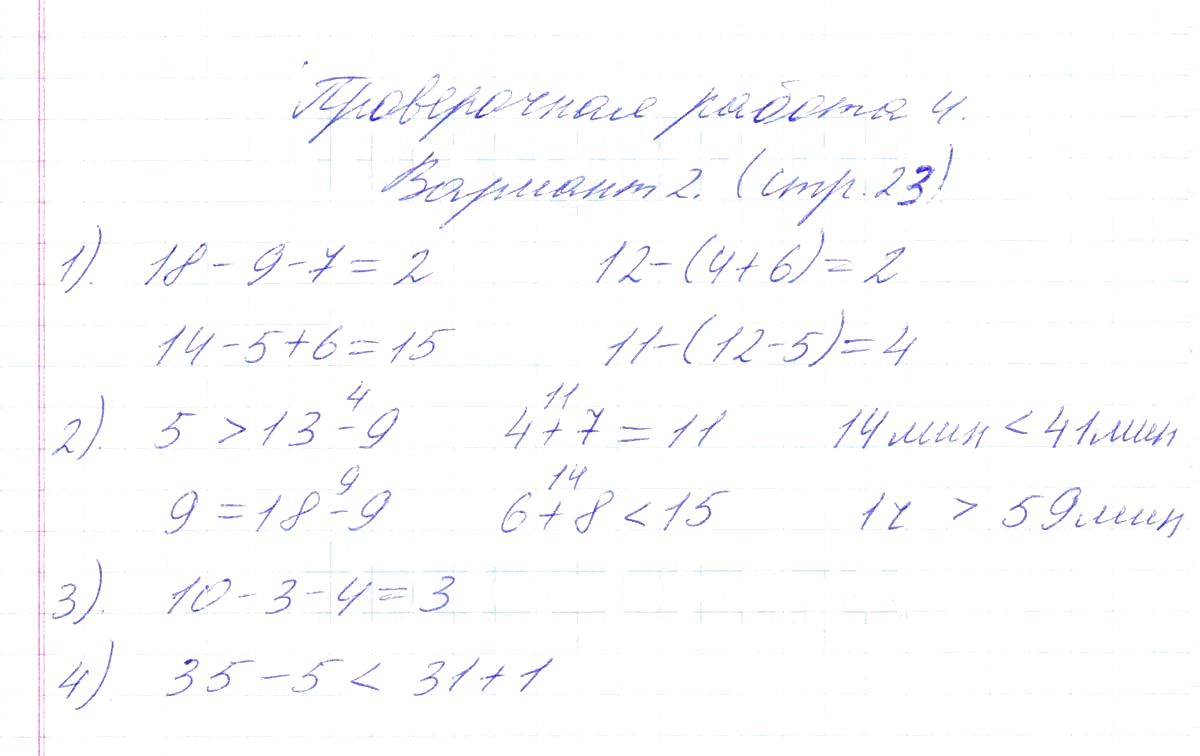 Проверочная работа 4.
Вариант 2. (стр. 23)
1). 18 - 9 - 7 = 2 12 - (4 + 6) = 2
14 - 5 + 6 = 15 11 - (12 - 5) = 4
4 11
2). 5 > 13 - 9 4 + 7 = 11 14 мин < 41 мин
9 14
9 = 18 - 9 6 + 8 < 15 1 ч > 59 мин
3). 10 - 3 - 4 = 3
4) 35 - 5 < 31 + 1